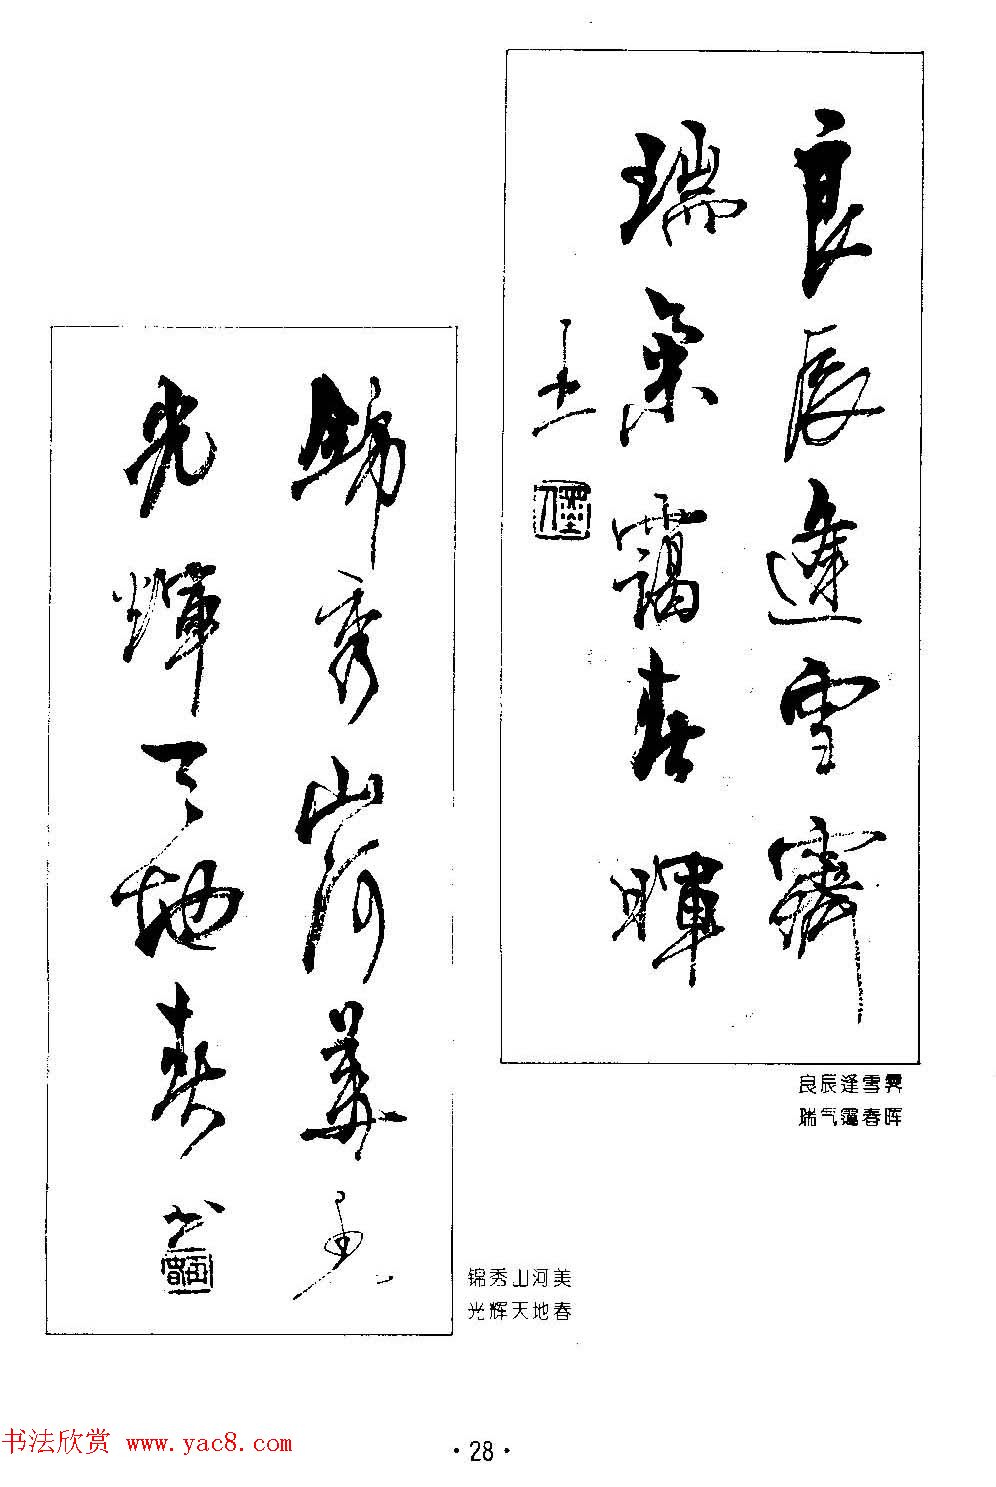 良辰逢雪霽
瑞氣靄春暉
良辰逢雪霁
瑞气霭春晖
錦秀山河美
光輝天地春
锦秀山河美
光辉天地春
书法欣赏 www.yac8.com
·28·